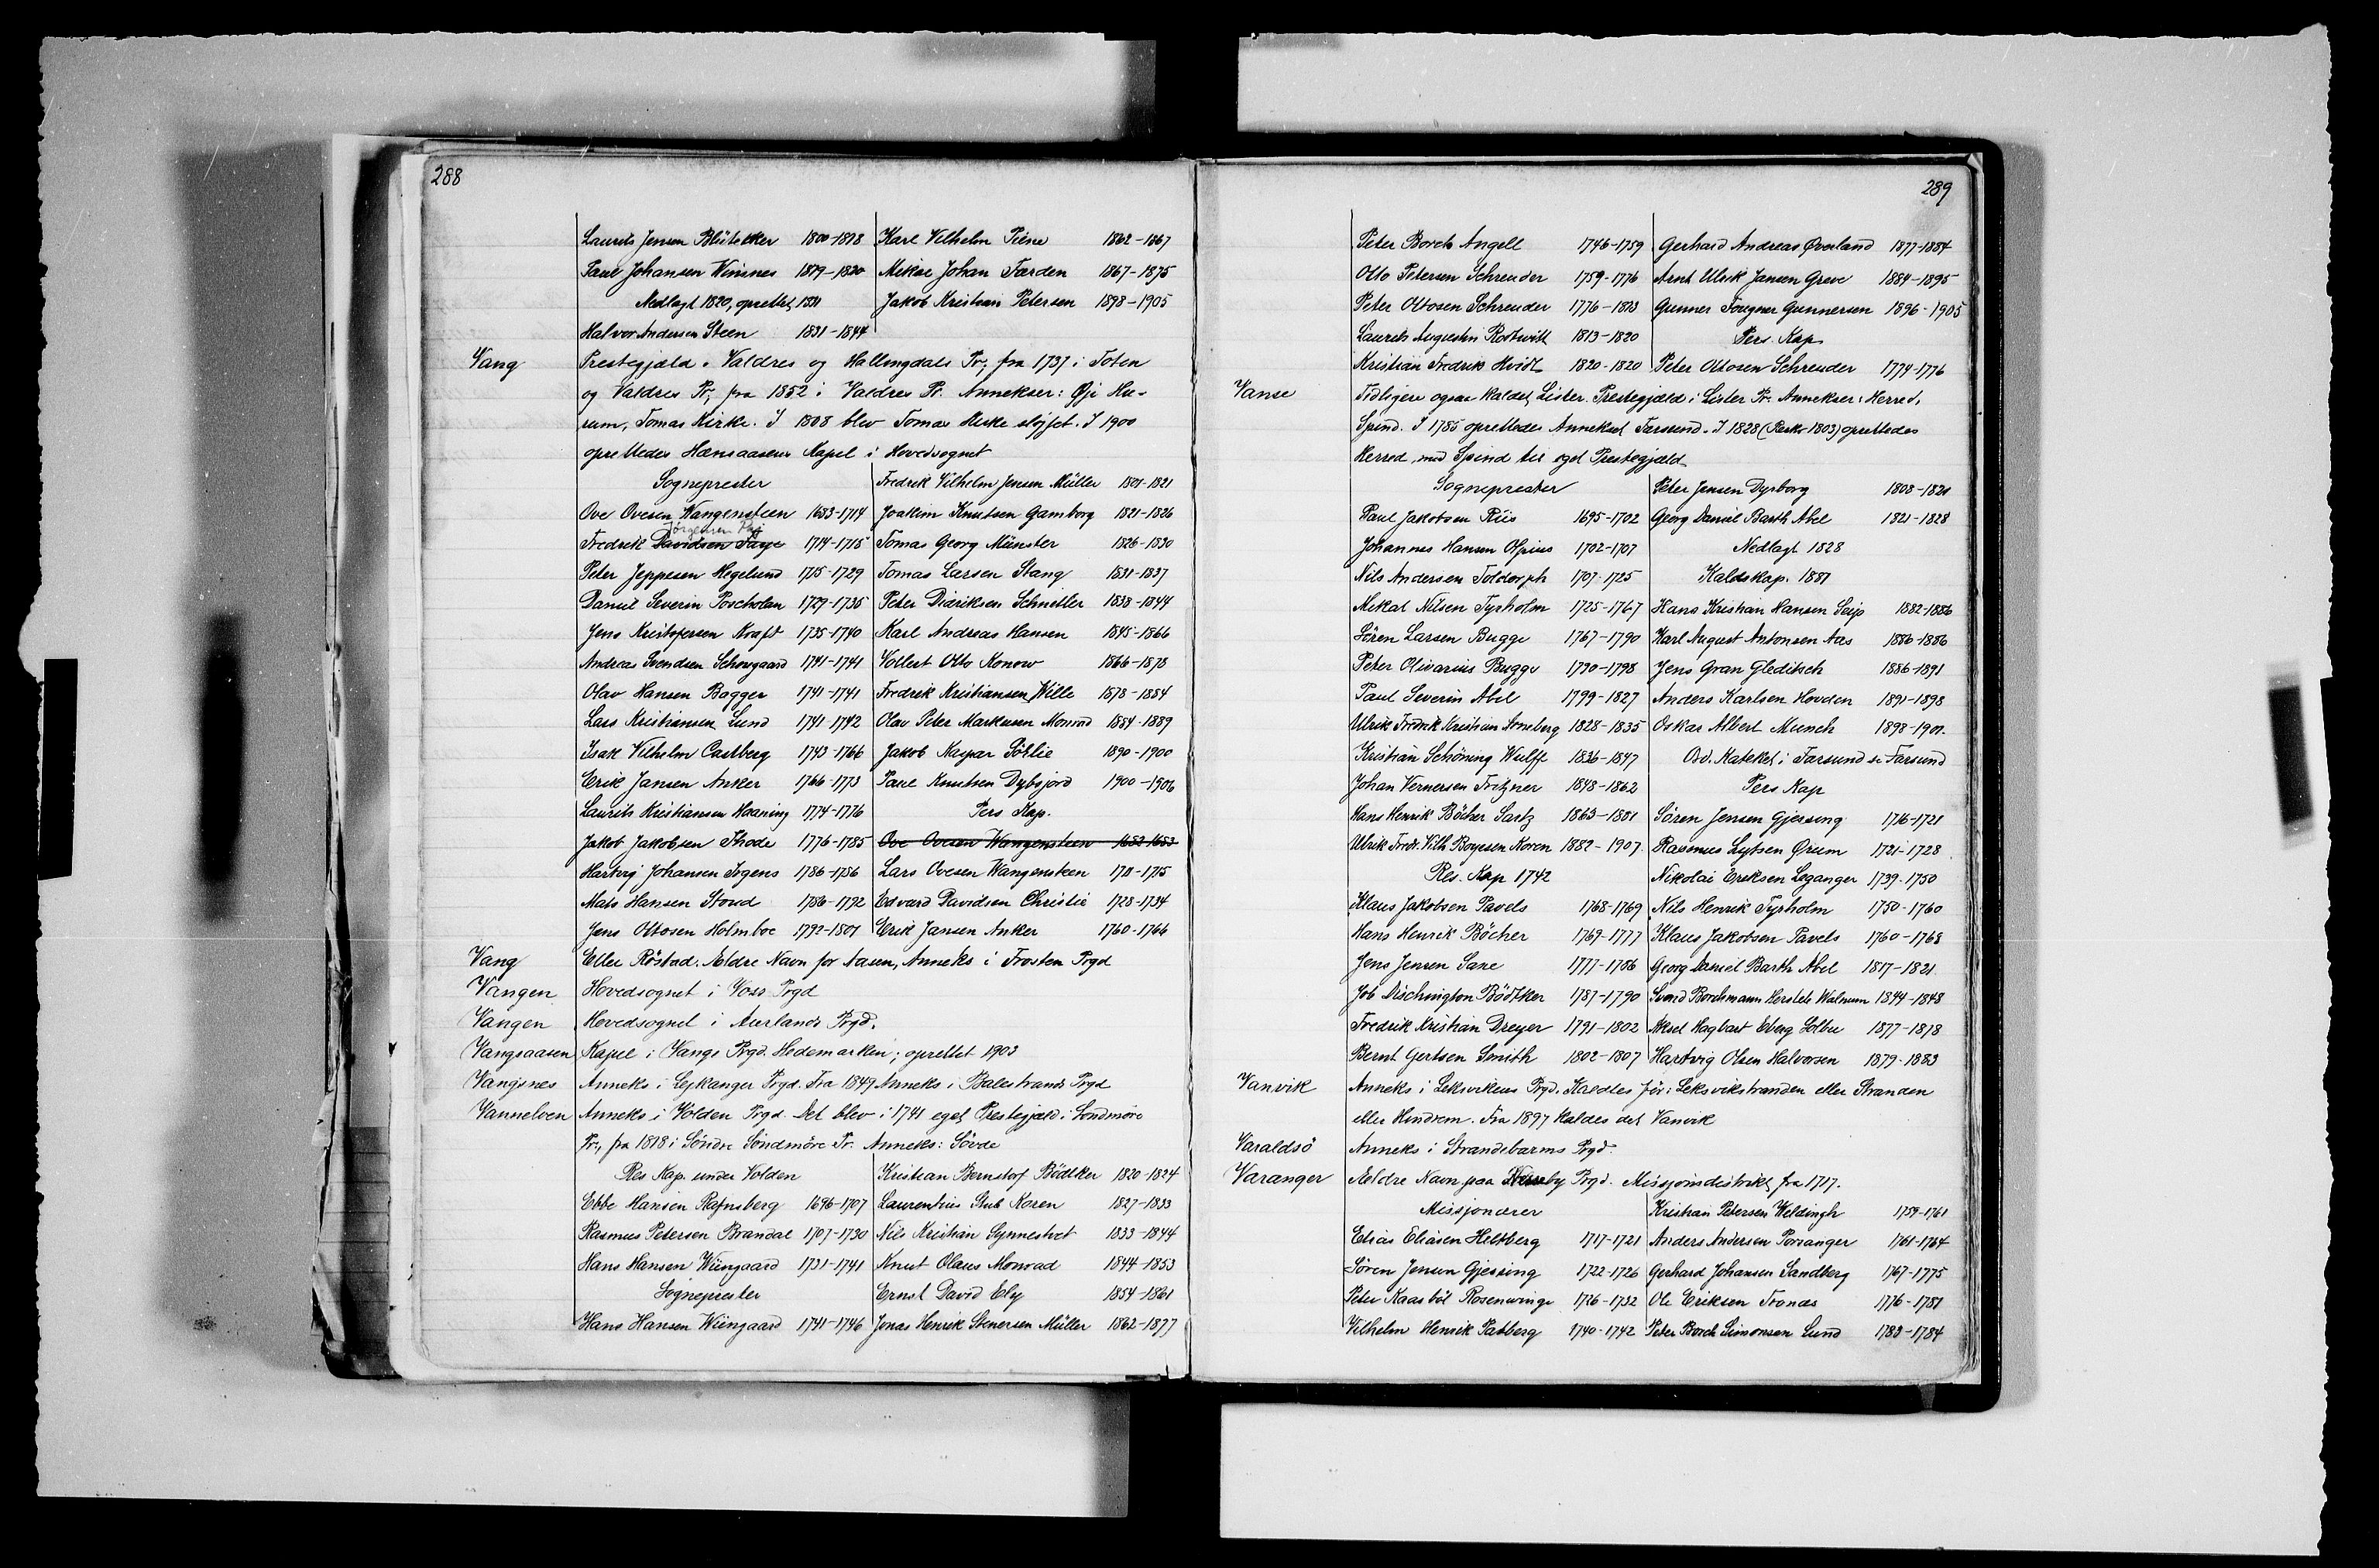 288
Laurits Jensen Blütecker 1800-1818
Paul Johansen Winsnes 1819-1820
Nedlagt 1820, oprettet 1831
Halvor Andersen Steen 1831-1844
Karl Vilhelm Piene 1862-1867
Mikae Johan Færden 1867-1875
Jakob Kristian Petersen 1898-1905
Vang Prestegjæld i Valdres og Hallingdals Pr, fra 1737 i Toten
og Valdres Pr, fra 1852 i Valdres Pr. Annekser: Øje Hu-
rum, Tomas Kirke. I 1808 blev Tomas Kirke sløjfet. I 1900
oprettedes Hænsaasens Kapel i Hovedsognet
Sogneprester
Ove Ovesen Wangensteen 1653-1714
Jörgensen Paj
Fredrik Davidsen Faye 1714-1715
Peter Jeppesen Hegelund 1715-1729
Daniel Severin Poscholan 1729-1735
Jens Kristofersen Kraft 1735-1740
Andreas Svendsen Schougaard 1741-1741
Olav Hansen Bagger 1741-1741
Lars Kristiansen Lund 1741-1742
Isak Vilhelm Castberg 1743-1766
Erik Jansen Anker 1766-1773
Laurits Kristiansen Haaning 1774-1776
Jakob Jakobsen Thode 1776-1785
Hartvig Johansen Irgens 1786-1786
Mats Hansen Stoud 1786-1792
Jens Ottosen Holmboe 1792-1801
Fredrik Vilhelm Jensen Müller 1801-1821
Joakim Knutsen Gamborg 1821-1826
Tomas Georg Münster 1826-1830
Tomas Larsen Stang 1831-1837
Peter Didriksen Schnitler 1838-1844
Karl Andreas Hansen 1845-1866
Vollert Otto Konow 1866-1878
Fredrik Kristiansen Wille 1878-1884
Olav Peter Markusen Monrad 1884-1889
Jakob Kaspar Töblie 1890-1900
Paul Knutsen Dybsjord 1900-1906
Pers Kap.
Ove Ovesen Wangensteen 1652-1653
Lars Ovesen Wangensteen 1711-1715
Edvard Davidsen Christie 1728-1734
Erik Jansen Anker 1760-1766
Vang Eller Röstad. Ældre Navn for Aasen, Anneks i Frosten Prgd
Vangen Hovedsognet i Voss Prgd
Vangen Hovedsognet i Aurlands Prgd.
Vangsaasen Kapel i Vangs Prgd. Hedemarken; oprettet 1903
Vangsnes Anneks i Lejkanger Prgd. Fra 1849 Anneks i Balestrands Prgd
Vannelven Anneks i Volden Prgd. Det blev i 1741 eget Prestegjæld i Söndmöre
Pr, fra 1818 i Söndre Söndmöre Pr. Anneks: Sövde
Res Kap. under Volden
Ebbe Hansen Rafnsberg 1696-1707
Rasmus Petersen Brandal 1707-1730
Hans Hansen Wiingaard 1731-1741
Sogneprester
Hans Hansen Wiingaard 1741-1746
Kristian Bernstorf Bödtker 1820-1824
Laurentius Stub Koren 1827-1833
Nils Kristian Synnestvet 1833-1844
Knut Olaus Monrad 1844-1853
Ernst David Ely 1854-1861
Jonas Henrik Stenersen Müller 1862-1877
289
Peter Borch Angell 1746-1759
Otto Petersen Schreuder 1759-1776
Peter Ottosen Schreuder 1776-1813
Laurits Augustin Rostwitt 1813-1820
Kristian Fredrik Hvidt 1820-1820
Gerhard Andreas Øverland 1877-1884
Arnt Ulrik Jansen Greve 1884-1895
Gunner Fougner Gunnersen 1896-1905
Pers. Kap
Peter Ottosen Schreuder 1774-1776
Vanse Tidligere ogsaa kaldet Lister. Prestegjæld i Lister Pr. Annekser: Herred,
Spind. I 1785 oprettedes Annekset Farsund. I 1828 (Reskr 1803) oprettedes
Herred med Spind til eget Prestegjæld
Sogneprester
Paul Jakobsen Riis 1695-1702
Johannes Hansen Alpius 1702-1707
Nils Andersen Toldorph 1707-1725
Mikal Nilsen Tyrholm 1725-1767
Sören Larsen Bugge 1767-1790
Peter Olivarius Bugge 1790-1798
Paul Severin Abel 1799-1827
Ulrik Fredrik Kristian Arneberg 1828-1835
Kristian Schöning Wulff 1836-1847
Johan Vernersen Fritzner 1848-1862
Hans Henrik Böcher Sartz 1863-1881
Ulrik Fredr. Vilh Boyesen Koren 1882-1907
Res. Kap 1742
Klaus Jakobsen Pavels 1768-1769
Hans Henrik Böcher 1769-1777
Jens Jensen Sane 1777-1786
Job Dischington Bödtker 1787-1790
Fredrik Kristian Dreyer 1791-1802
Bernt Gertsen Smith 1802-1807
Peter Jensen Dyrborg 1808-1820
Georg Daniel Barth Abel 1821-1828
Nedlagt 1828
Kaldskap. 1881
Hans Kristian Hansen Seip 1882-1886
Karl August Antonsen Aas 1886-1886
Jens Gran Gleditsch 1886-1891
Anders Karlsen Hovden 1891-1898
Oskar Albert Munch 1898-1901.
Ord. Kateket i Farsund se Farsund
Pers Kap
Sören Jensen Gjessing 1716-1721
Rasmus Lytsen Ørum 1721-1728
Nikolai Eriksen Leganger 1739-1750
Nils Henrik Tyrholm 1750-1760
Klaus Jakobsen Pavels 1760-1768
Georg Daniel Barth Abel 1817-1821
Svend Borchmann Hersleb Walnum 1844-1848
Aksel Hagbart Eberg Solbu 1877-1878
Hartvig Olsen Halvorsen 1879-1883
Vanvik Anneks i Leksvikens Prgd. Kaldtes för: Leksvikstranden eller Stranden
eller Hindrem. Fra 1897 kaldes det Vanvik
Varaldsö Anneks i Strandebarms Prgd.
Varanger Ældre Navn paa Nesseby Prgd. Missjonsdistrikt fra 1717.
Missjonærer
Elias Eliasen Heltberg 1717-1721
Sören Jensen Gjessing 1722-1726
Peter Kaasböl Rosenvinge 1726-1732
Vilhelm Henrik Patberg 1740-1742
Kristian Petersen Weldingh 1759-1761
Anders Andersen Porsanger 1761-1764
Gerhard Johansen Sandberg 1767-1775
Ole Eriksen Tronæs 1776-1781
Peter Borch Simonsen Lund 1783-1784